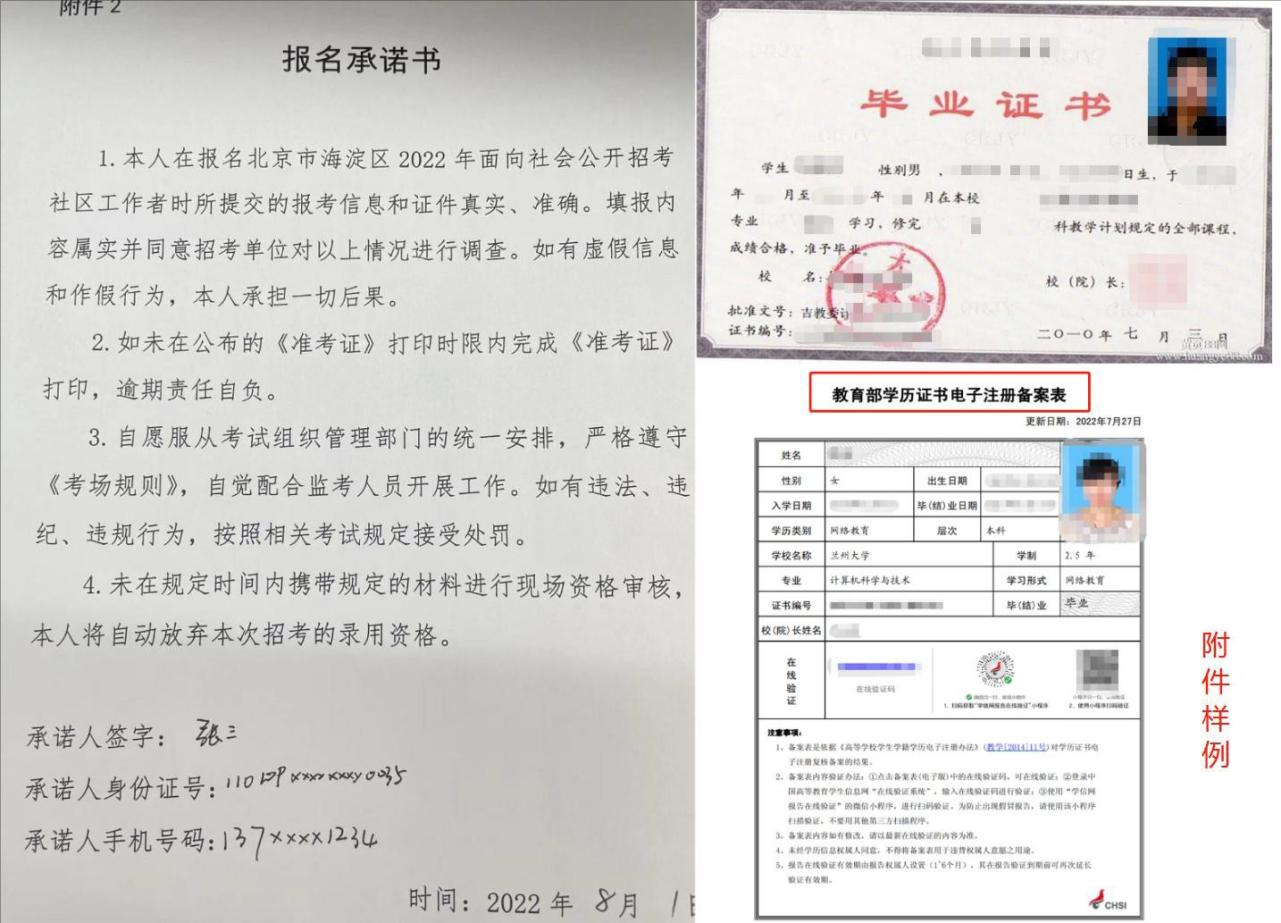 附件 2
报名承诺书
1.本人在报名北京市海淀区 2022 年面向社会公开招考
社区工作者时所提交的报考信息和证件真实、准确。填报内
容属实并同意招考单位对以上情况进行调查。如有虚假信息
和作假行为，本人承担一切后果。
2.如未在公布的《准考证》打印时限内完成《准考证》
打印，逾期责任自负。
3.自愿服从考试组织管理部门的统一安排，严格遵守
《考场规则》，自觉配合监考人员开展工作。如有违法、违
纪、违规行为，按照相关考试规定接受处罚。
4.未在规定时间内携带规定的材料进行现场资格审核，
本人将自动放弃本次招考的录用资格。
承诺人签字： 张三
承诺人身份证号：110109xxxxxxxxy0035
承诺人手机号码：137xxxx1234
时间：2022 年 8月 1日
毕业证书
学生 性别男 、 日生，于
年 月至 年 月在本校
专业 学习，修完 科教学计划规定的全部课程，
成绩合格，准予毕业。
校 名： 校（院）长：
批准文号：吉教委
证书编号： 二〇一〇年 七 月 三 日
黄页88网
www.huangye88.com
教育部学历证书电子注册备案表
更新日期：2022年7月27日
姓名
性别 女 出生日期
入学日期 毕(结)业日期
学历类别 网络教育 层次 本科
学校名称 兰州大学 学制 2.5 年
专业 计算机科学与技术 学习形式 网络教育
证书编号 毕(结)业 毕业
校(院)长姓名
在线验证
在线验证码
1、扫码获取“学信网报告在线验证”小程序
2、使用小程序扫码验证
注意事项：
1、备案表是依据《高等学校学生学籍学历电子注册办法》(教学[2014]11号)对学历证书电
子注册复核备案的结果。
2、备案表内容验证办法：①点击备案表(电子版)中的在线验证码，可在线验证；②登录中
国高等教育学生信息网“在线验证系统”，输入在线验证码进行验证；③使用“学信网
报告在线验证”的微信小程序，进行扫码验证。为防止出现假冒报告，请使用该小程序
扫描验证，不要用其他第三方扫描程序。
3、备案表内容如有修改，请以最新在线验证的内容为准。
4、未经学历信息权属人同意，不得将备案表用于违背权属人意愿之用途。
5、报告在线验证有效期由报告权属人设置（1~6个月），其在报告验证到期前可再次延长
验证有效期。
CHSI
附件样例